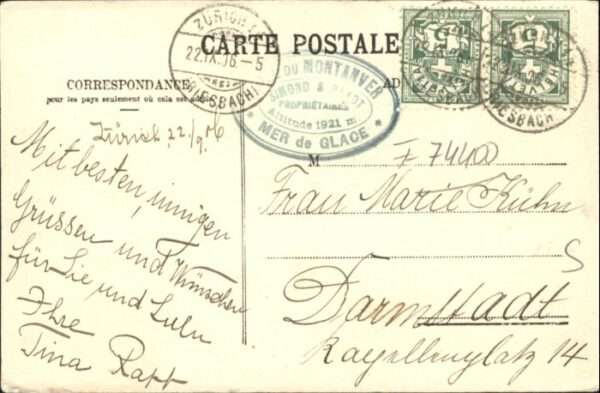 ZÜRICH
22.IX.06-5
(RIESBACH)
CARTE POSTALE
CORRESPONDANCE
pour les pays seulement où cela est
AD
DU MONTANVER
SIMOND &
PROPRIÉTAIRES
Altitude 1921 m
* MER de GLACE *
HELVETIA
5
HELVETIA
5
RIESBACH
Zürich 22./9.06
Mit besten, innigen
Grüssen und Wünschen
für Sie und Lulu
Ihre
Tina Rapp
M
74400
Frau Marie Kühn
S
Darmstadt
14